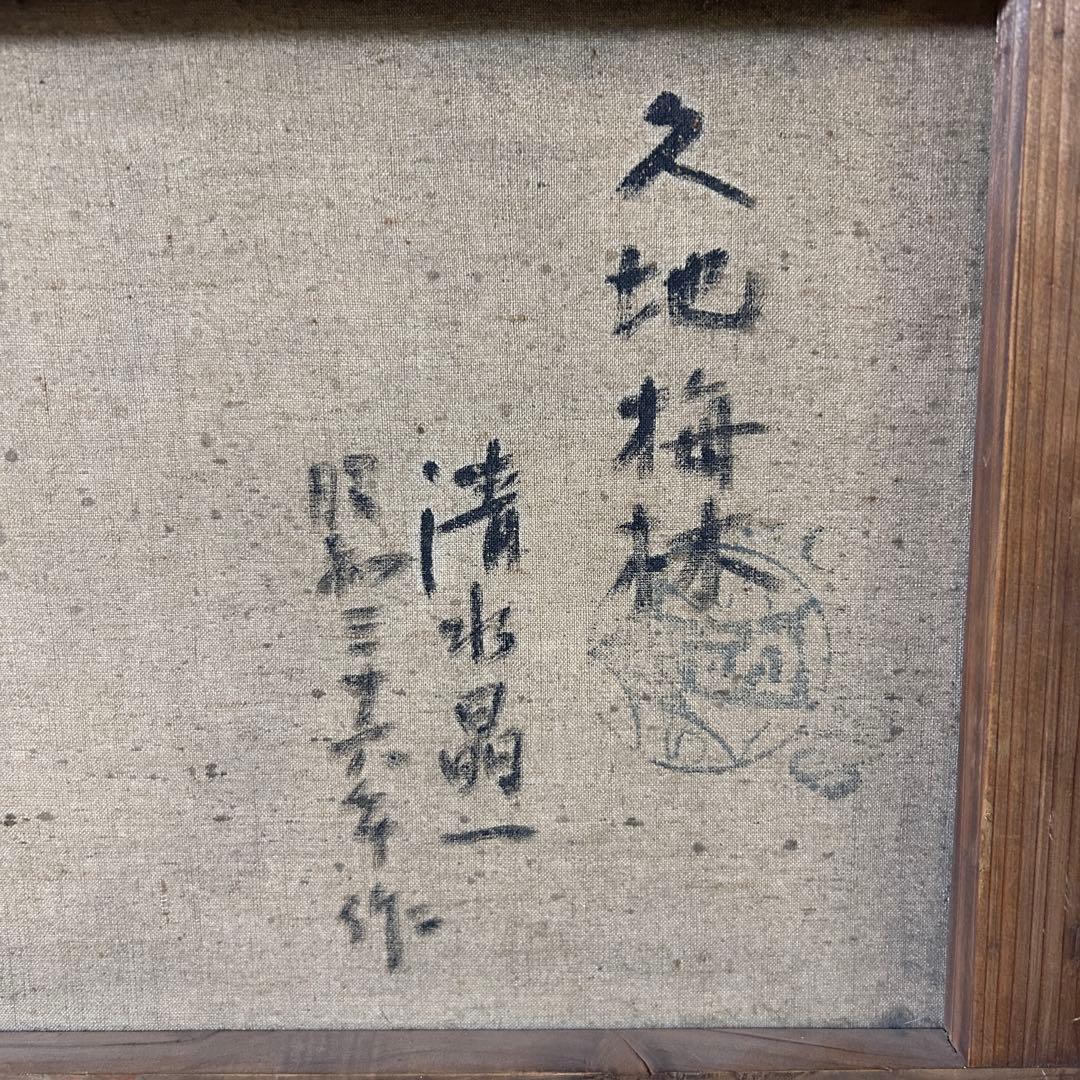 久地梅林
清水晶一
昭和三十六年作